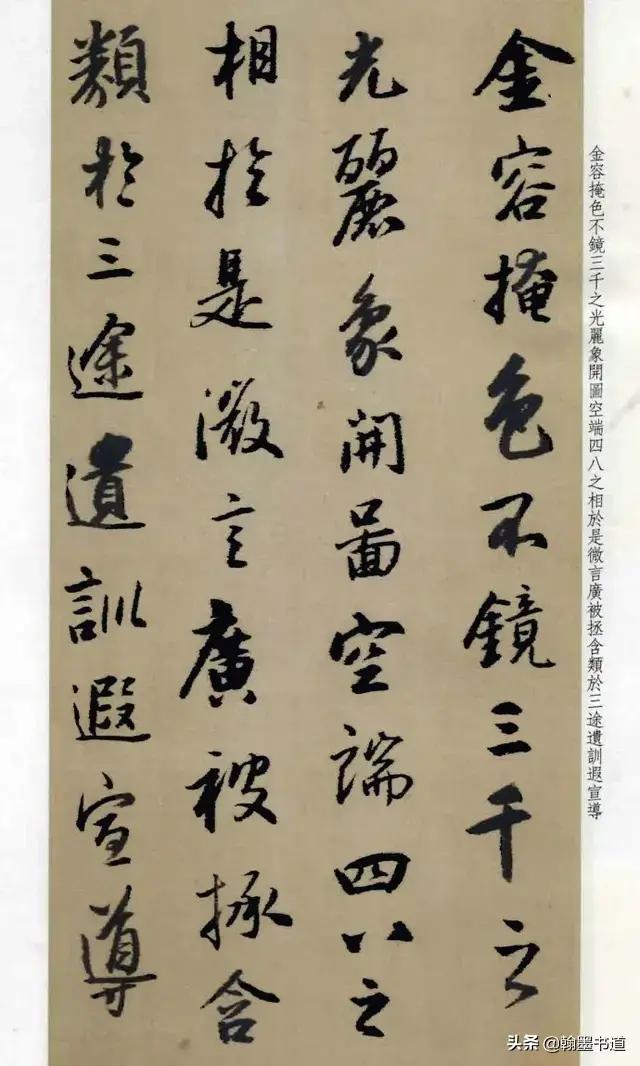 金容掩色不鏡三千之
光麗象開圖空端四八之
相於是微言廣被拯含
類於三途遺訓遐宣導
金容掩色不鏡三千之光麗象開圖空端四八之相於是微言廣被拯含類於三途遺訓遐宣導
头条 @翰墨书道